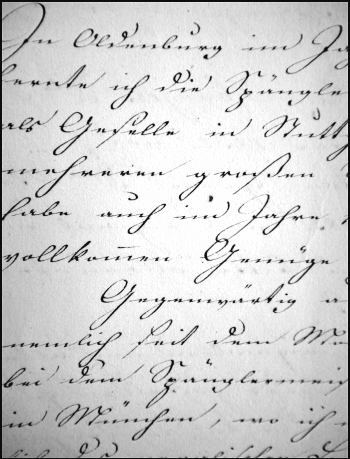 In Oldenburg im Ja
lernte ich die Spängle
als Geselle in Stutt
mehreren großen
habe auch im Jahre
vollkommen Genüge
Gegenwärtig a
nemlich seit dem Mo
bei dem Spänglermeis
in München, wo ich